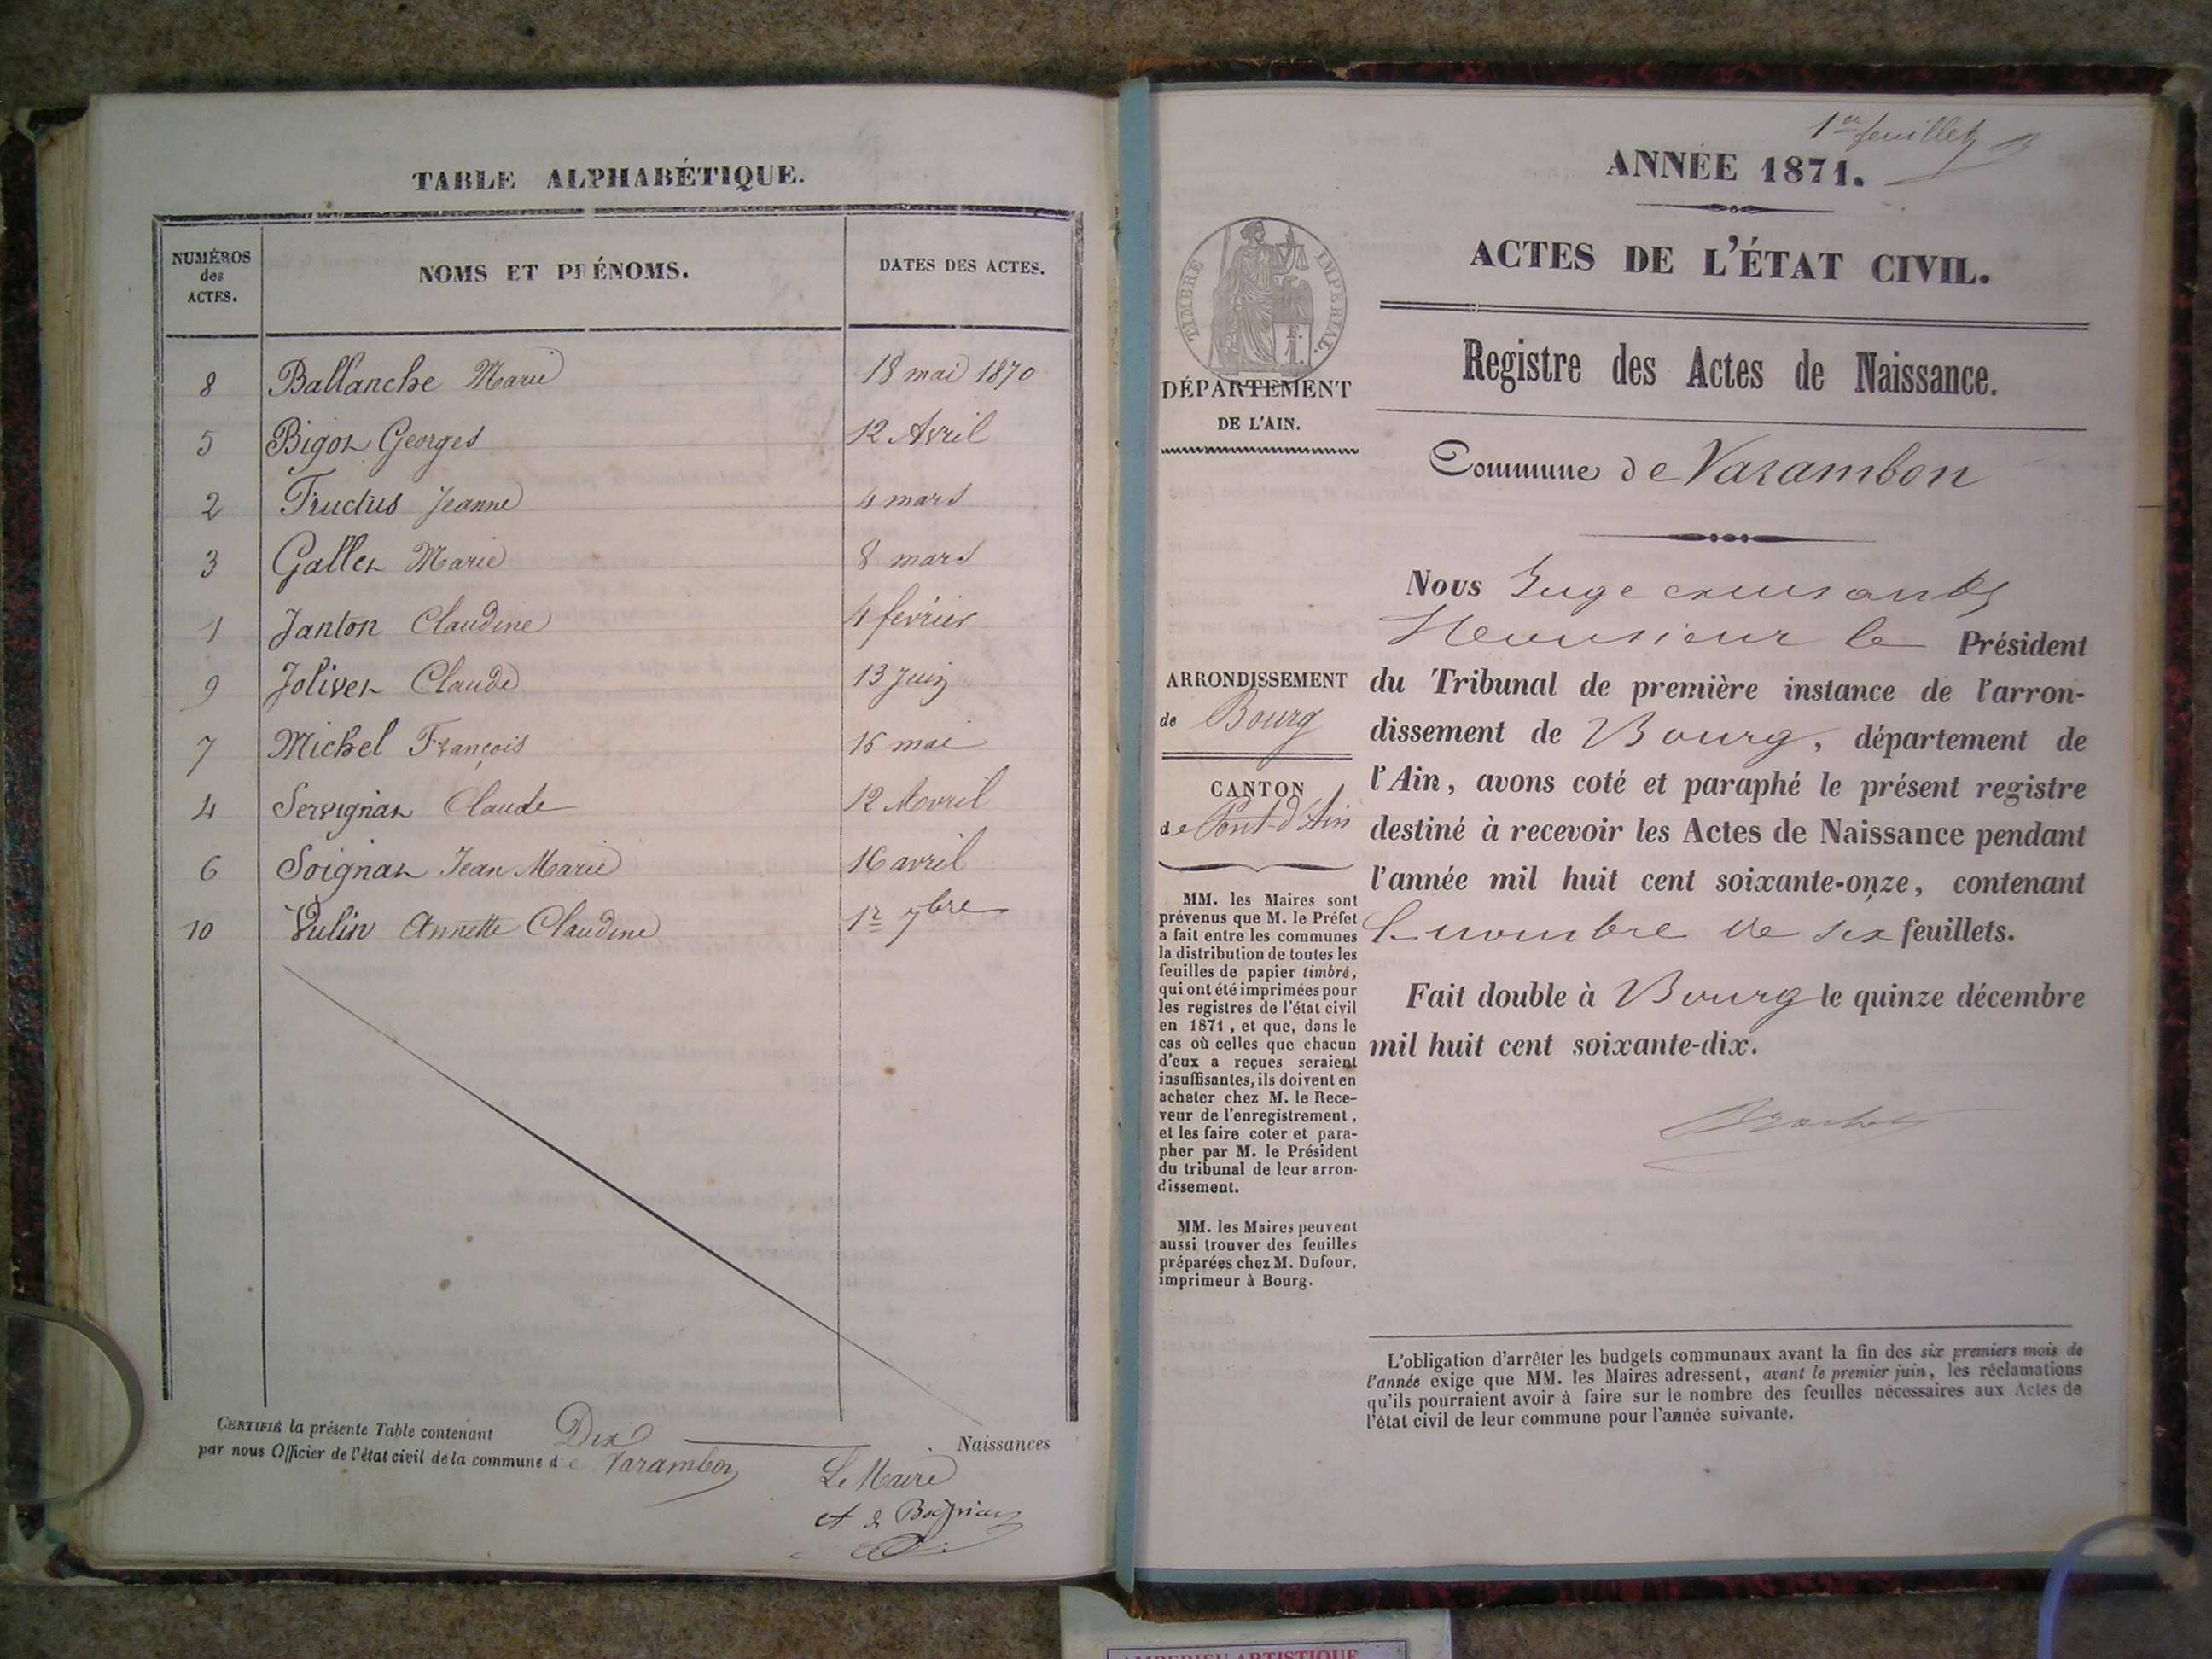 TABLE ALPHABÉTIQUE.
NUMÉROS
des
ACTES.
NOMS ET PRÉNOMS.
DATES DES ACTES.
8 Ballanche Marie 18 mai 1870
5 Bigot Georges 12 Avril
2 Fructus Jeanne 4 mars
3 Gallet Marie 8 mars
1 Janton Claudine 4 février
9 Jolivet Claude 13 Juin
7 Michel François 16 mai
4 Servignat Claude 12 Avril
6 Soignat Jean Marie 16 avril
10 Vulin Annette Claudine 1r 7bre
CERTIFIÉ la présente Table contenant Dix Naissances
par nous Officier de l'état civil de la commune de Varambon
Le Maire
1er feuillet
ANNÉE 1871.
ACTES DE L'ÉTAT CIVIL.
Registre des Actes de Naissance.
TIMBRE IMPÉRIAL.
DÉPARTEMENT
DE L'AIN.
Commune de Varambon
ARRONDISSEMENT
de Bourg
CANTON
de Pont-d'Ain
MM. les Maires sont
prévenus que M. le Préfet
a fait entre les communes
la distribution de toutes les
feuilles de papier timbré,
qui ont été imprimées pour
les registres de l'état civil
en 1871, et que, dans le
cas où celles que chacun
d'eux a reçues seraient
insuffisantes, ils doivent en
acheter chez M. le Rece-
veur de l'enregistrement,
et les faire coter et para-
pher par M. le Président
du tribunal de leur arron-
dissement.
MM. les Maires peuvent
aussi trouver des feuilles
préparées chez M. Dufour,
imprimeur à Bourg.
Nous Juge
Monsieur le Président
du Tribunal de première instance de l'arron-
dissement de Bourg, département de
l'Ain, avons coté et paraphé le présent registre
destiné à recevoir les Actes de Naissance pendant
l'année mil huit cent soixante-onze, contenant
le nombre de six feuillets.
Fait double à Bourg le quinze décembre
mil huit cent soixante-dix.
L'obligation d'arrêter les budgets communaux avant la fin des six premiers mois de
l'année exige que MM. les Maires adressent, avant le premier juin, les réclamations
qu'ils pourraient avoir à faire sur le nombre des feuilles nécessaires aux Actes de
l'état civil de leur commune pour l'année suivante.
AMBERIEU ARTISTIQUE